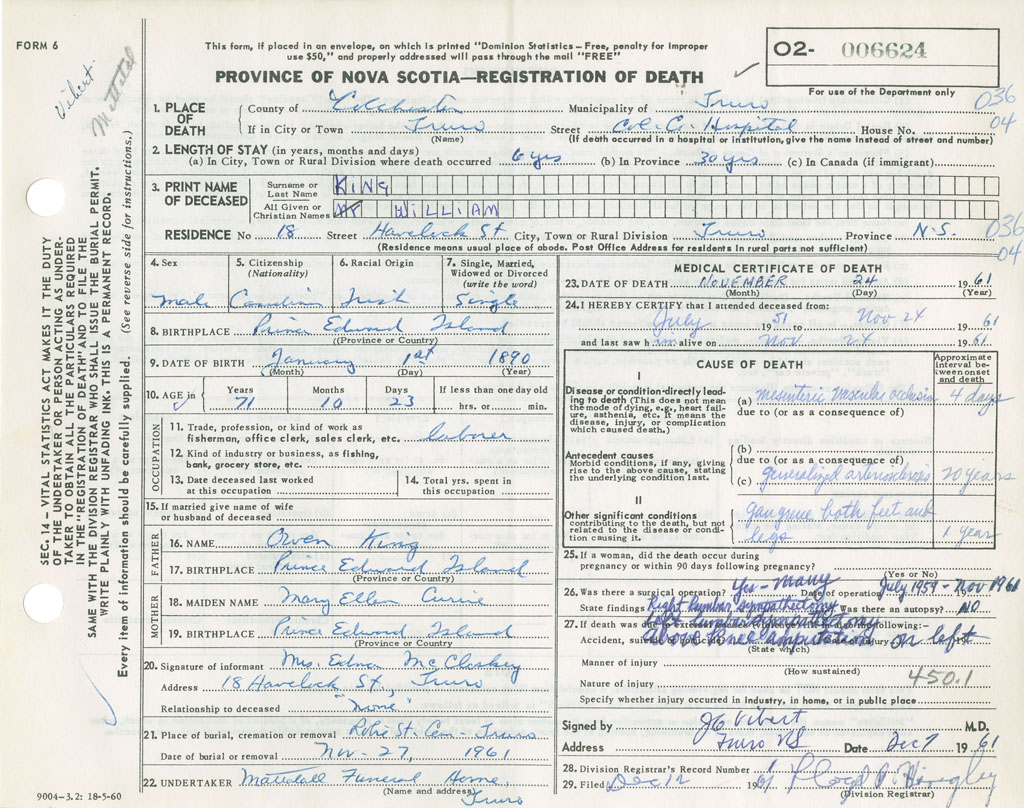 FORM 6
Vibert
This form, if placed in an envelope, on which is printed "Dominion Statistics – Free, penalty for improper
use $50," and properly addressed will pass through the mail "FREE"
PROVINCE OF NOVA SCOTIA—REGISTRATION OF DEATH
O2- 006624
For use of the Department only
036
04
1. PLACE OF DEATH
County of Colchester Municipality of Truro
If in City or Town Truro Street Col. Co. Hospital House No.
(Name) (If death occurred in a hospital or institution, give the name instead of street and number)
2. LENGTH OF STAY (in years, months and days)
(a) In City, Town or Rural Division where death occurred 6 yrs (b) In Province 30 yrs (c) In Canada (if immigrant)
3. PRINT NAME OF DECEASED
Surname or Last Name KING
All Given or Christian Names WILLIAM
RESIDENCE No 18 Street Havelock St City, Town or Rural Division Truro Province N.S.
036
04
(Residence means usual place of abode. Post Office Address for residents in rural parts not sufficient)
4. Sex
male
5. Citizenship (Nationality)
Canadian
6. Racial Origin
Irish
7. Single, Married, Widowed or Divorced (write the word)
Single
8. BIRTHPLACE Prince Edward Island
(Province or Country)
9. DATE OF BIRTH January 1st 1890
(Month) (Day) (Year)
10. AGE in Years 71 Months 10 Days 23 If less than one day old hrs. or min.
OCCUPATION
11. Trade, profession, or kind of work as
fisherman, office clerk, sales clerk, etc. laborer
12. Kind of industry or business, as fishing,
bank, grocery store, etc.
13. Date deceased last worked
at this occupation
14. Total yrs. spent in
this occupation
15. If married give name of wife
or husband of deceased
FATHER
16. NAME Owen King
17. BIRTHPLACE Prince Edward Island
(Province or Country)
MOTHER
18. MAIDEN NAME Mary Ellen Currie
19. BIRTHPLACE Prince Edward Island
(Province or Country)
20. Signature of informant Mrs. Edna McCloskey
Address 18 Havelock St., Truro
Relationship to deceased "none"
21. Place of burial, cremation or removal Robie St. Cem - Truro
Date of burial or removal Nov-27, 1961
22. UNDERTAKER Mattatall Funeral Home,
(Name and address) Truro
9004-3.2: 18-5-60
MEDICAL CERTIFICATE OF DEATH
23. DATE OF DEATH NOVEMBER 24 1961
(Month) (Day) (Year)
24. I HEREBY CERTIFY that I attended deceased from:
July 1951 to Nov 24 1961
and last saw him alive on Nov 24 1961
CAUSE OF DEATH
Approximate interval between onset and death
I
Disease or condition directly leading to death (This does not mean the mode of dying, e.g., heart failure, asthenia, etc. It means the disease, injury, or complication which caused death.)
(a) mesenteric vascular occlusion 4 days
due to (or as a consequence of)
Antecedent causes
Morbid conditions, if any, giving rise to the above cause, stating the underlying condition last.
(b)
due to (or as a consequence of)
(c) generalized arteriosclerosis 20 years
II
Other significant conditions
contributing to the death, but not related to the disease or condition causing it.
gangrene both feet and
legs 1 year
25. If a woman, did the death occur during
pregnancy or within 90 days following pregnancy?
(Yes or No)
26. Was there a surgical operation? Yes - Many Date of operation July 1959 - Nov 1961
State findings Right lumbar sympathectomy Was there an autopsy? NO
left lumbar sympathectomy
27. If death was due to external causes (violence) fill in the following:-
Above Knee amputation on left
(State which)
Manner of injury
(How sustained)
Nature of injury 450.1
Specify whether injury occurred in industry, in home, or in public place
Signed by JG Vibert M.D.
Address Truro NS Date Dec 7 1961
28. Division Registrar's Record Number 1
29. Filed Dec 12 1961
(Division Registrar)
SEC. 14 – VITAL STATISTICS ACT MAKES IT THE DUTY
OF THE UNDERTAKER OR PERSON ACTING AS UNDER-
TAKER TO OBTAIN ALL THE PARTICULARS REQUIRED
IN THE "REGISTRATION OF DEATH" AND TO FILE THE
SAME WITH THE DIVISION REGISTRAR WHO SHALL ISSUE THE BURIAL PERMIT.
WRITE PLAINLY WITH UNFADING INK. THIS IS A PERMANENT RECORD.
Every item of information should be carefully supplied. (See reverse side for instructions.)